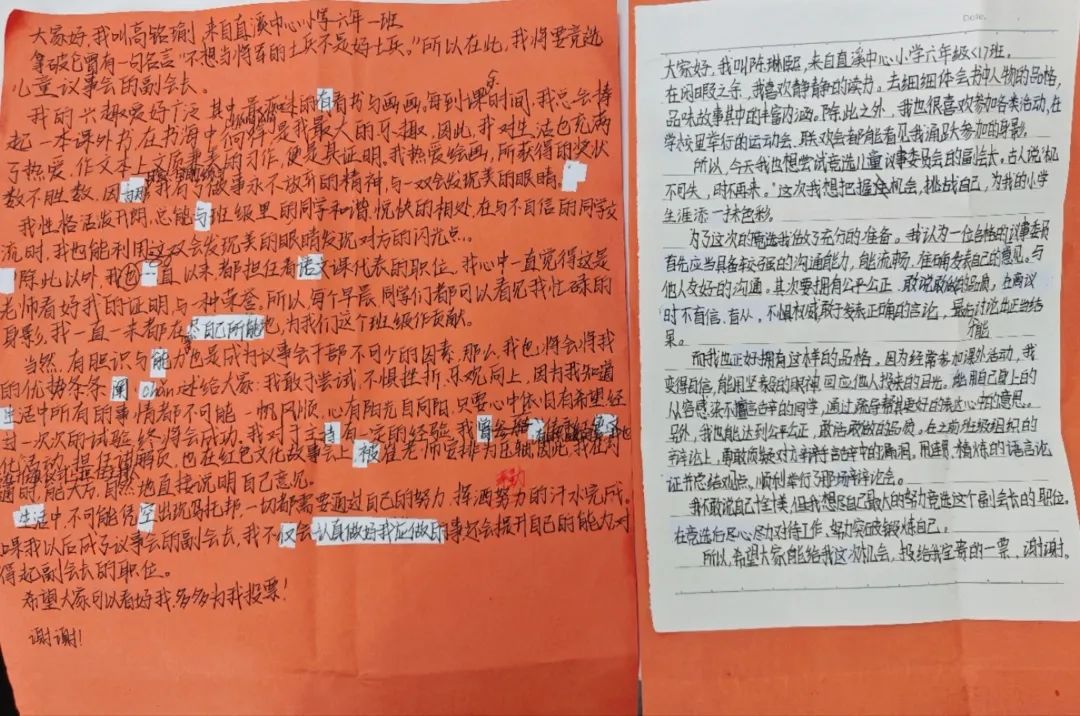 大家好,我叫高铭瑜,来自直溪中心小学六年一班
拿破仑曾有一句名言“不想当将军的士兵不是好士兵。”所以在此,我将要竞选
儿童议事会的副会长。
我的兴趣爱好广泛,其中最有趣味的有看书与画画,每到课余时间,我总会捧
起一本课外书,在书海中徜徉是我最大的乐趣,因此,我对生活也充满
了热爱,作文本上文质兼美的习作,便是其证明。我热爱绘画,所获得的奖状
数不胜数,因为我有与做事永不放弃的精神,与一双会发现美的眼睛。
我性格活泼开朗,总能与班级里的同学和谐,愉快的相处,在与不自信的同学交
流时,我也能利用这双会发现美的眼睛发现对方的闪光点。
除此以外,我一直以来都担任着语文课代表的职位,我心中一直觉得这是
老师看好我的证明,与一种荣誉。所以,每个早晨,同学们都可以看见我忙碌的
身影,我一直一来都在尽自己所能地,为我们这个班级作贡献。
当然,有胆识与能力也是成为议事会干部不可少的因素,那么,我也将会将我
的优势条条阐述给大家:我敢于尝试,不惧挫折,乐观向上,因为我知道
生活中所有的事情都不可能一帆风顺,心有阳光自向阳,只要心中依旧有希望,经
过一次次的试验终将会成功。我对于主持有一定的经验,我曾
化活动,担任讲解员,也在红色文化故事会上被崔老师安排为压轴,因此,我在沟
通时,能大方,自然地直接说明自己意见。
生活中,不可能凭空出现乌托邦,一切都需要通过自己的努力,挥洒努力的汗水完成。
如果我以后成了议事会的副会长,我不仅会认真做好我应做的事,还会提升自己的能力,对
得起副会长的职位。
希望大家可以看好我,多多为我投票!
谢谢!
Date.
大家好,我叫陈琳,来自直溪中心小学六年级<1>班。
在闲暇之余,我喜欢静静的读书。去细细体会书中人物的品格,
品味故事其中的丰富内涵。除此之外,我也很喜欢参加各类活动,在
学校里举行的运动会、联欢会都能看见我踊跃参加的身影。
所以,今天我也想尝试竞选儿童议事委员会的副会长。古人说:“机
不可失,时不再来。”这次我想把握住机会,挑战自己,为我的小学
生涯添一抹色彩。
为了这次的竞选我做了充分的准备。我认为一位合格的议事委员
首先应当具备较强的沟通能力,能流畅、准确发表自己的意见。与
他人友好的沟通。其次要拥有公平公正、敢说敢做的品质,在商议
时不盲信、盲从,不惧权威,敢于发表正确的言论,最后讨论出正当结
果。
而我也正好拥有这样的品格。因为经常参加课外活动,我
变得自信,能用坚毅的眼神回应他人投来的目光。能用自己身上的
从容感染不擅言辞的同学,通过疏导帮其更好的表达心中的意思。
另外,我也能达到公平公正,敢说敢做的品质。在之前班级组织的
辩论上,勇敢质疑对方辩持言辞中的漏洞。用连贯、精炼的语言论
证并总结观点。顺利举行了那场辩论会。
我不敢说自己全美,但我想尽自己最大的努力竞选这个副会长的职位。
在竞选后尽心尽力对待工作,努力突破锻炼自己。
所以,希望大家能给我这次机会,投给我宝贵的一票,谢谢。